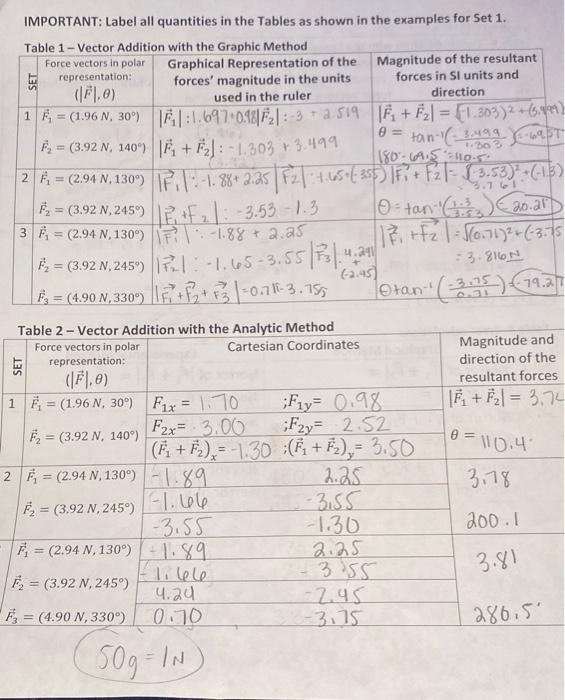 IMPORTANT: Label all quantities in the Tables as shown in the examples for Set 1.
Table 1 – Vector Addition with the Graphic Method
SET
Force vectors in polar representation: (|F⃗|, θ)
Graphical Representation of the forces' magnitude in the units used in the ruler
Magnitude of the resultant forces in SI units and direction
1 F⃗₁ = (1.96 N, 30°) |F⃗₁|: 1.697+0.98 |F⃗₂|: -3 + 2.519 |F⃗₁ + F⃗₂| = √(-1.303)² + (3.499)
θ = tan⁻¹(-3.499/1.303)
F⃗₂ = (3.92 N, 140°) |F⃗₁ + F⃗₂|: -1.303 + 3.499
180-69.5=110.5°
2 F⃗₁ = (2.94 N, 130°) |F⃗₁|: -1.88+2.25 |F⃗₂|: -1.65+(-3.55) |F⃗₁ + F⃗₂| = √(-3.53)²+(-1.3)
3.761
F⃗₂ = (3.92 N, 245°) |F⃗₁+F⃗₂|: -3.53 -1.3 θ=tan⁻¹(1.3/3.53) 20.21
3 F⃗₁ = (2.94 N, 130°) |F⃗₁|: -1.88 + 2.25 |F⃗₁ + F⃗₂| = √(0.71)²+(-3.75
F⃗₂ = (3.92 N, 245°) |F⃗₂|: -1.65-3.55 |F⃗₃|: 4.241 + (-2.45) = 3.816N
F⃗₃ = (4.90 N, 330°) |F⃗₁+F⃗₂+F⃗₃|=0.711-3.755 θtan⁻¹(-3.75/0.71) -79.2
Table 2 – Vector Addition with the Analytic Method
SET
Force vectors in polar representation: (|F⃗|, θ)
Cartesian Coordinates
Magnitude and direction of the resultant forces
1 F⃗₁ = (1.96 N, 30°) F₁ₓ = 1.70 ;F₁y= 0.98 |F⃗₁ + F⃗₂| = 3.7
F⃗₂ = (3.92 N, 140°) F₂ₓ= -3.00 ;F₂y= 2.52
(F⃗₁ + F⃗₂)ₓ= -1.30 ;(F⃗₁ + F⃗₂)y= 3.50 θ = 110.4°
2 F⃗₁ = (2.94 N, 130°) -1.89 2.25 3.78
F⃗₂ = (3.92 N, 245°) -1.66 -3.55
-3.55 -1.30 200.1
F⃗₁ = (2.94 N, 130°) -1.89 2.25
F⃗₂ = (3.92 N, 245°) -1.66 -3.55 3.81
4.24 -2.45
F⃗₃ = (4.90 N, 330°) 0.70 -3.75 280.5°
50g = 1N